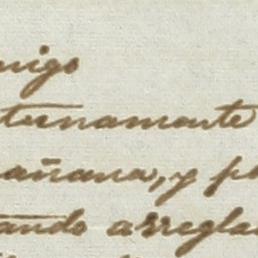 migo
ternamente
añana, y p
ando arregla